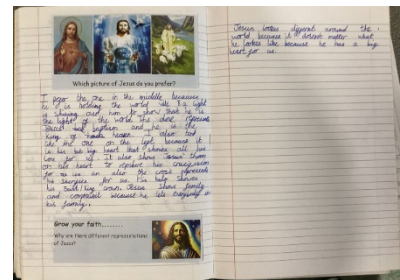 Which picture of Jesus do you prefer?
I the one in the middle because
he is holding the world and a light
is shining him to show that he is
the light of the world the dove
baptism and he is the
king of heaven. I also
like the one on the left because it
is his big heart that shows all his
love for us. It also shows
on his heart to his
for us an also the cross
his sacrifice for us. His halo shows
his crown. Jesus show family
and because he lets everybody in
his family.
Grow your faith........
Why are there different representations
of Jesus?
Jesus looks around the
world because it doesnt matter what
he looks like because he has a big
heart for us.